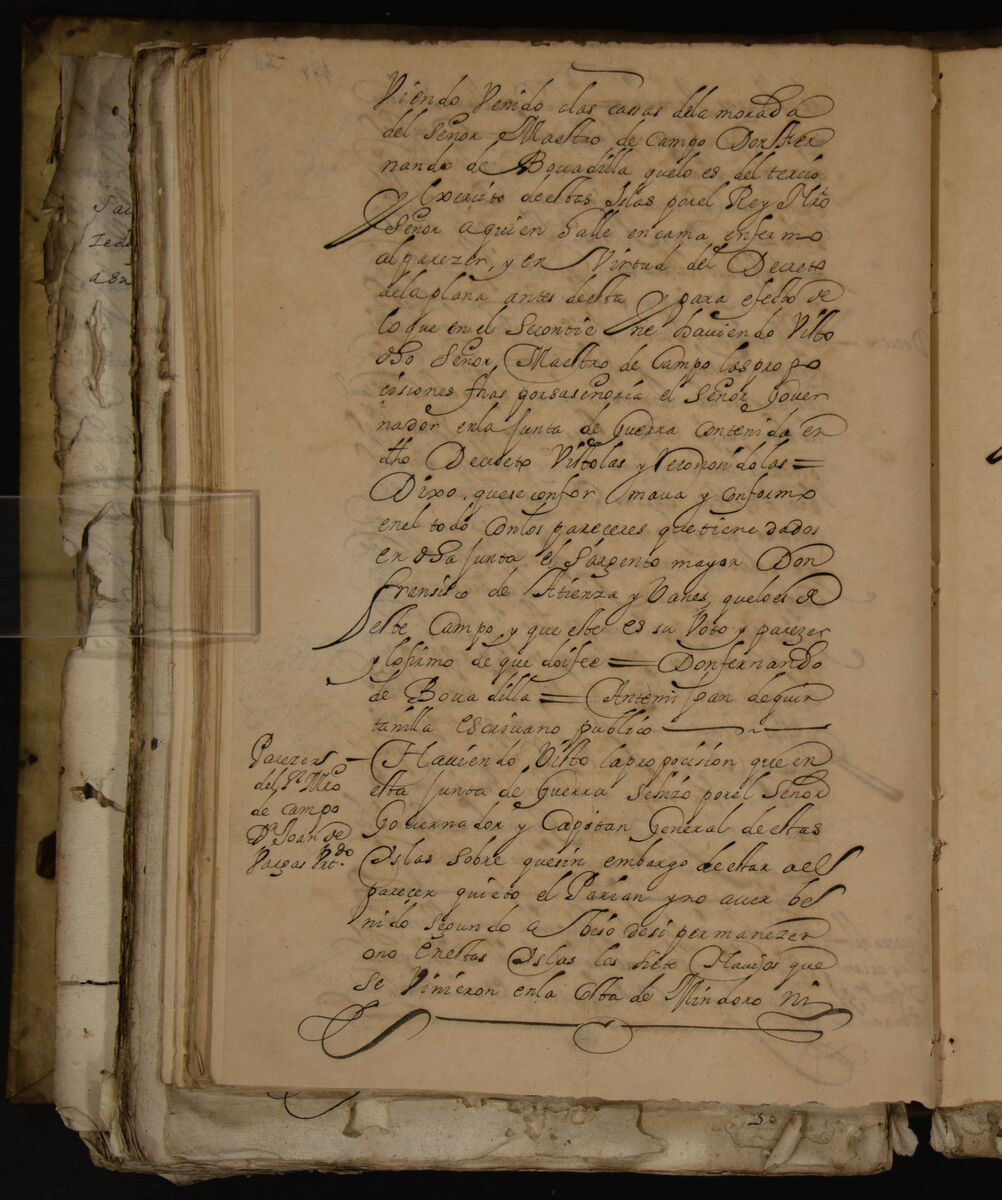 Viendo Venido a las cassas dela morada
del Señor Maestro de campo Don Fer
nando de Bouadilla quelo es del tercio
y Exercito destas Islas por el Rey Nro
Señor a quien halle en cama enfermo
al parezer, y en Virtud del Decreto
dela plana antes desta y para efecto de
lo que en el se contiene haviendo Visto
dho Señor Maestro de Campo las propo
ciciones fhas por su señoria el Señor Gouer
nador en la Junta de Guerra Contenida en
dho Decreto Vistolas y Reconosidolas =
Dixo, que se confor maua y conformo
en el todo con los pareceres que tiene dados
en dha Junta el Sargento mayor Don
Fransisco de Atienza y Vanes, quelo es de
este Campo y que este es su Voto y parezer
y lo firmo de que doi fee = Don fernando
de Bouadilla = Antemi Joan de quin
tanilla escriuano publico
Parezer
del Sr Mro
de campo
Dn Joan de
Vargas Vrt.do
Haviendo Visto la proposision que en
esta Junta de Guerra se hizo por el Señor
Gouernador y Capitan General de estas
Islas sobre que sin embargo de estar a el
parecer quieto el Parian y no auer be
nido segundo a biso de si permanezen
o no en estas Islas los siete Nauios que
se Vinieron en la Costa de Mindoro ni